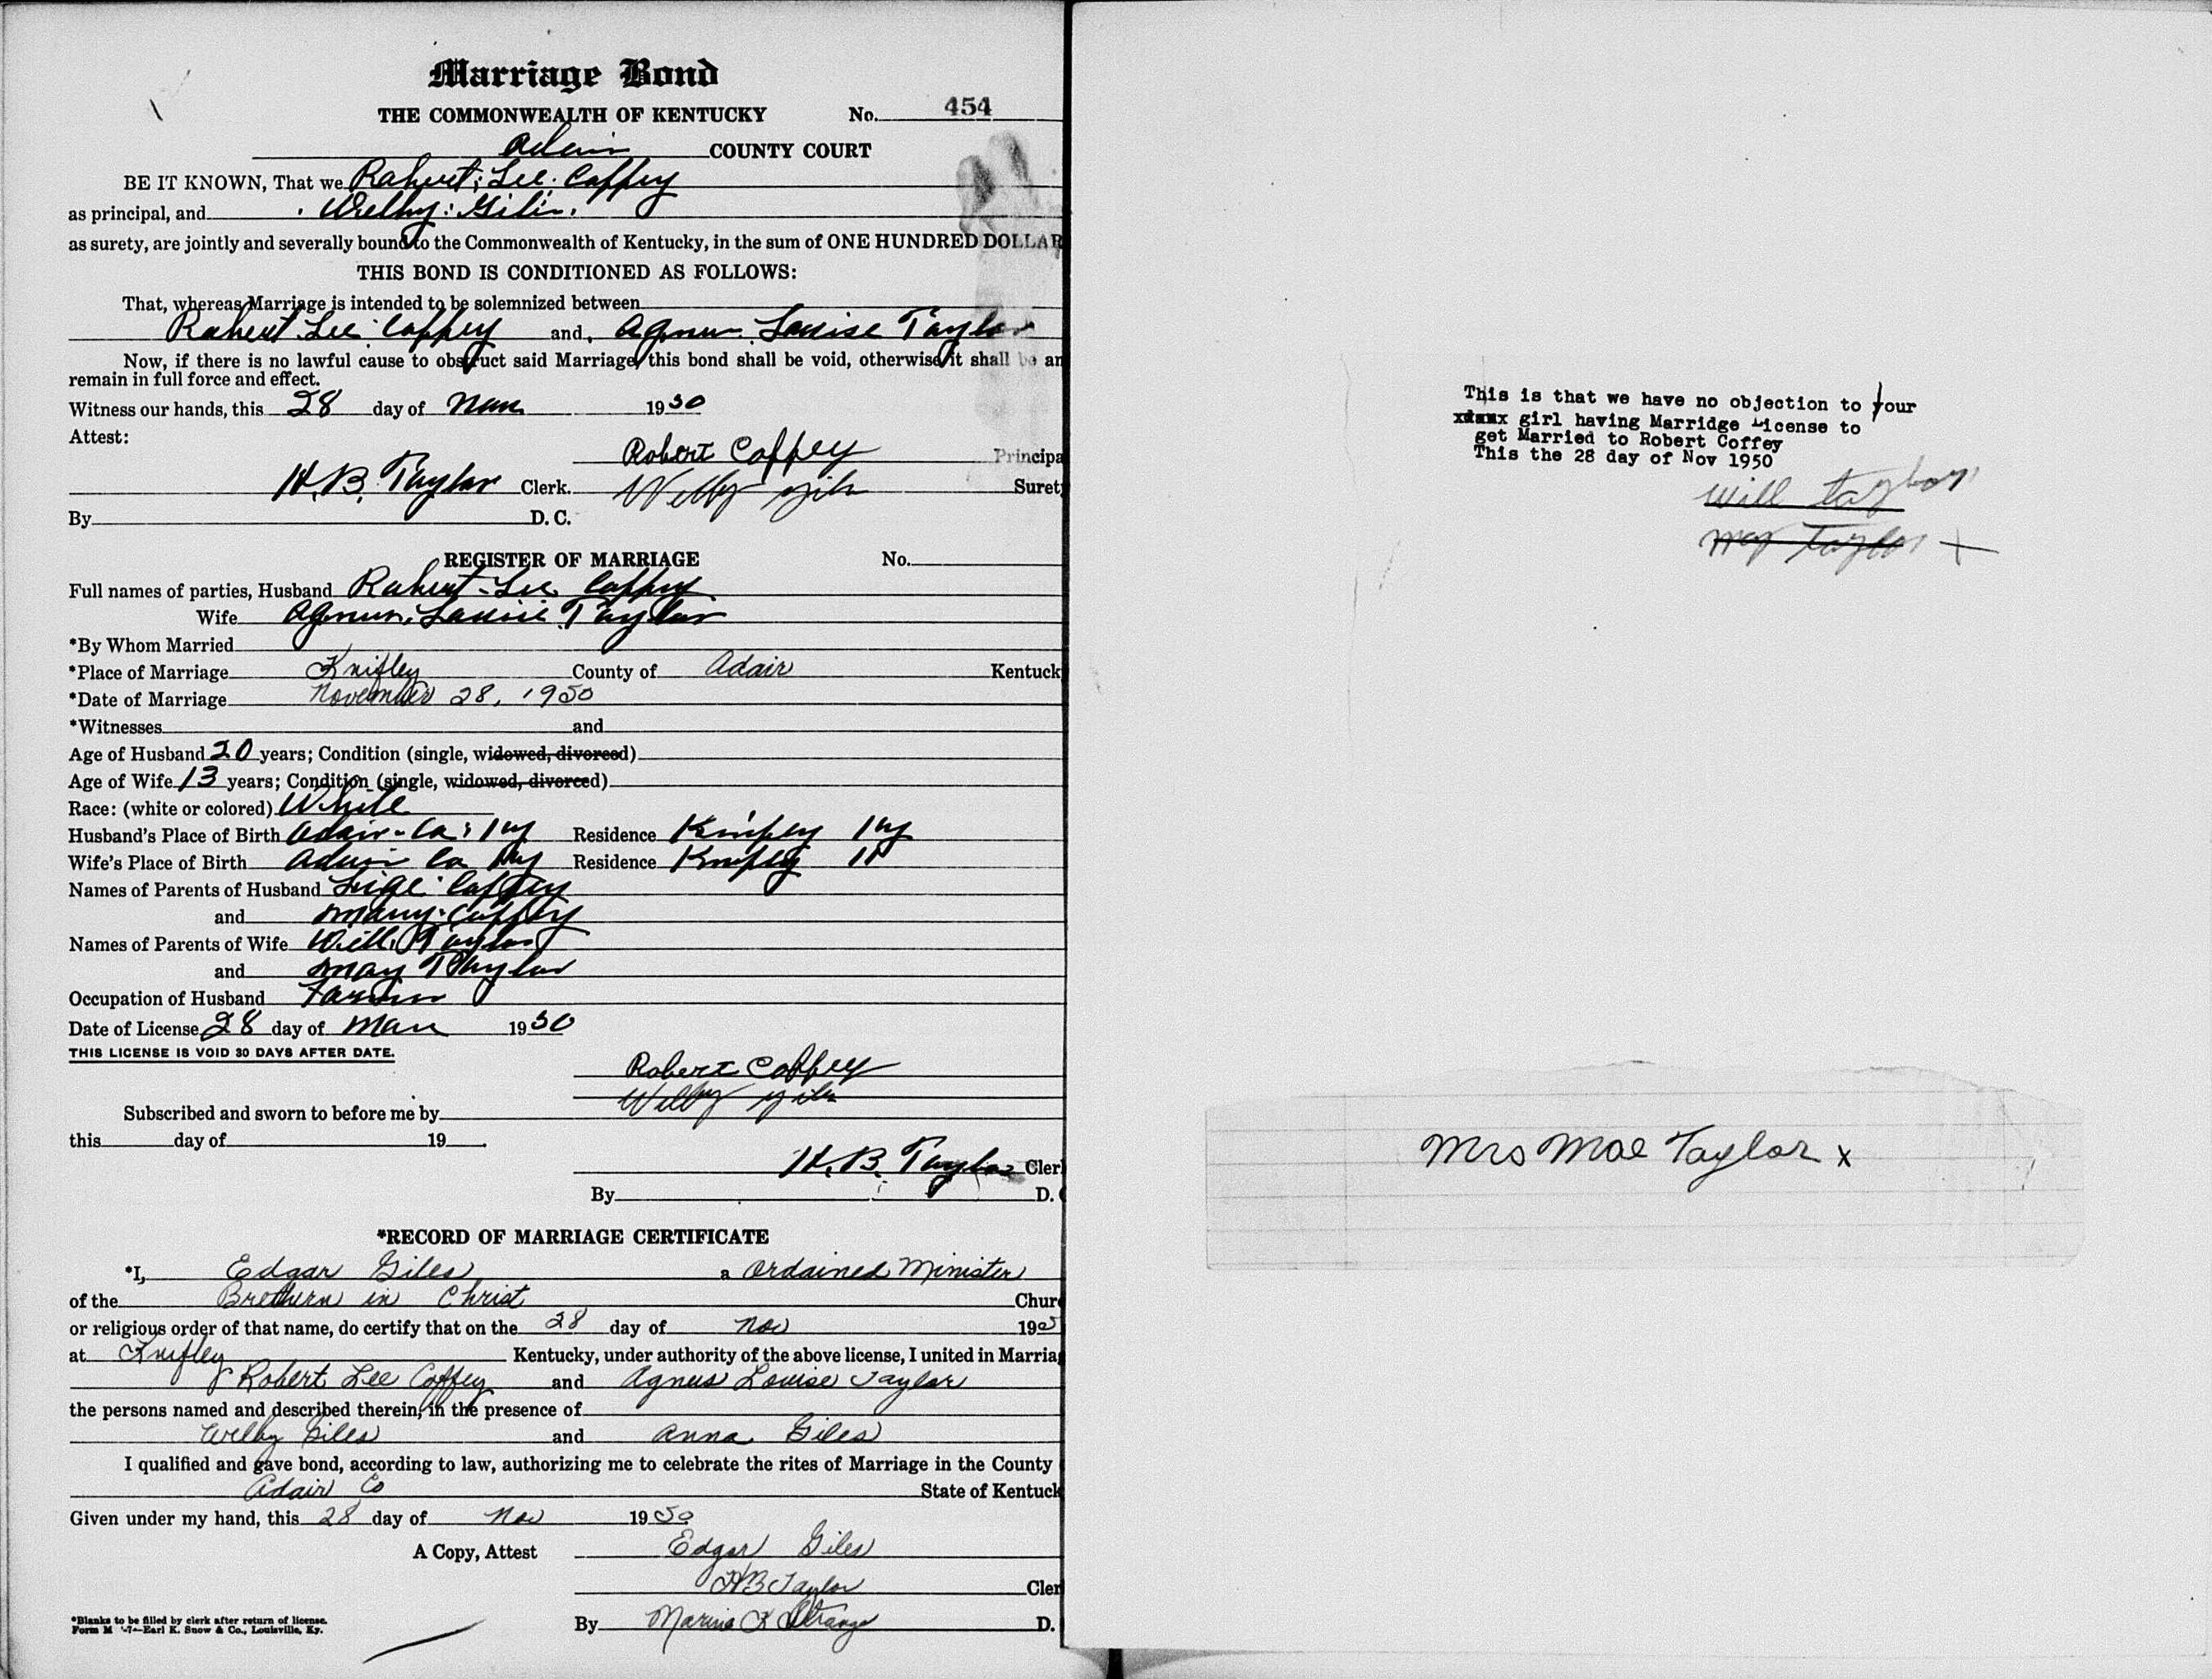 Marriage Bond
THE COMMONWEALTH OF KENTUCKY No. 454
Adair COUNTY COURT
BE IT KNOWN, That we Robert Lee Coffey
as principal, and Welby Giles
as surety, are jointly and severally bound to the Commonwealth of Kentucky, in the sum of ONE HUNDRED DOLLAR
THIS BOND IS CONDITIONED AS FOLLOWS:
That, whereas Marriage is intended to be solemnized between
Robert Lee Coffey and Agnus Louise Taylor
Now, if there is no lawful cause to obstruct said Marriage, this bond shall be void, otherwise it shall be an
remain in full force and effect.
Witness our hands, this 28 day of Nov 1950
Attest:
Robert Coffey Principa
H. B. Taylor Clerk. Welby Giles Suret
By D. C.
REGISTER OF MARRIAGE No.
Full names of parties, Husband Robert Lee Coffey
Wife Agnus Louise Taylor
*By Whom Married
*Place of Marriage Knifley County of Adair Kentuck
*Date of Marriage November 28, 1950
*Witnesses and
Age of Husband 20 years; Condition (single, widowed, divorced)
Age of Wife 13 years; Condition (single, widowed, divorced)
Race: (white or colored) White
Husband's Place of Birth Adair Co. Ky Residence Knifley Ky
Wife's Place of Birth Adair Co Ky Residence Knifley "
Names of Parents of Husband Lige Coffey
and Mary Coffey
Names of Parents of Wife Will Taylor
and May Taylor
Occupation of Husband Farmer
Date of License 28 day of Nov 1950
THIS LICENSE IS VOID 30 DAYS AFTER DATE.
Robert Coffey
Welby Giles
Subscribed and sworn to before me by
this day of 19 .
H. B. Taylor Cler
By D.
*RECORD OF MARRIAGE CERTIFICATE
*I, Edgar Giles a Ordained Minister
of the Brethern in Christ Chur
or religious order of that name, do certify that on the 28 day of Nov 195
at Knifley Kentucky, under authority of the above license, I united in Marria
Robert Lee Coffey and Agnus Louise Taylor
the persons named and described therein, in the presence of
Welby Giles and Anna Giles
I qualified and gave bond, according to law, authorizing me to celebrate the rites of Marriage in the County
Adair Co State of Kentuck
Given under my hand, this 28 day of Nov 1950
A Copy, Attest Edgar Giles
HB Taylor Cler
By Marine K Strange D.
*Blanks to be filled by clerk after return of license.
Form M -7-Earl K. Snow & Co., Louisville, Ky.
This is that we have no objection to our
girl having Marridge License to
get Married to Robert Coffey
This the 28 day of Nov 1950
Will taylor
May Taylor X
Mrs Mae Taylor x